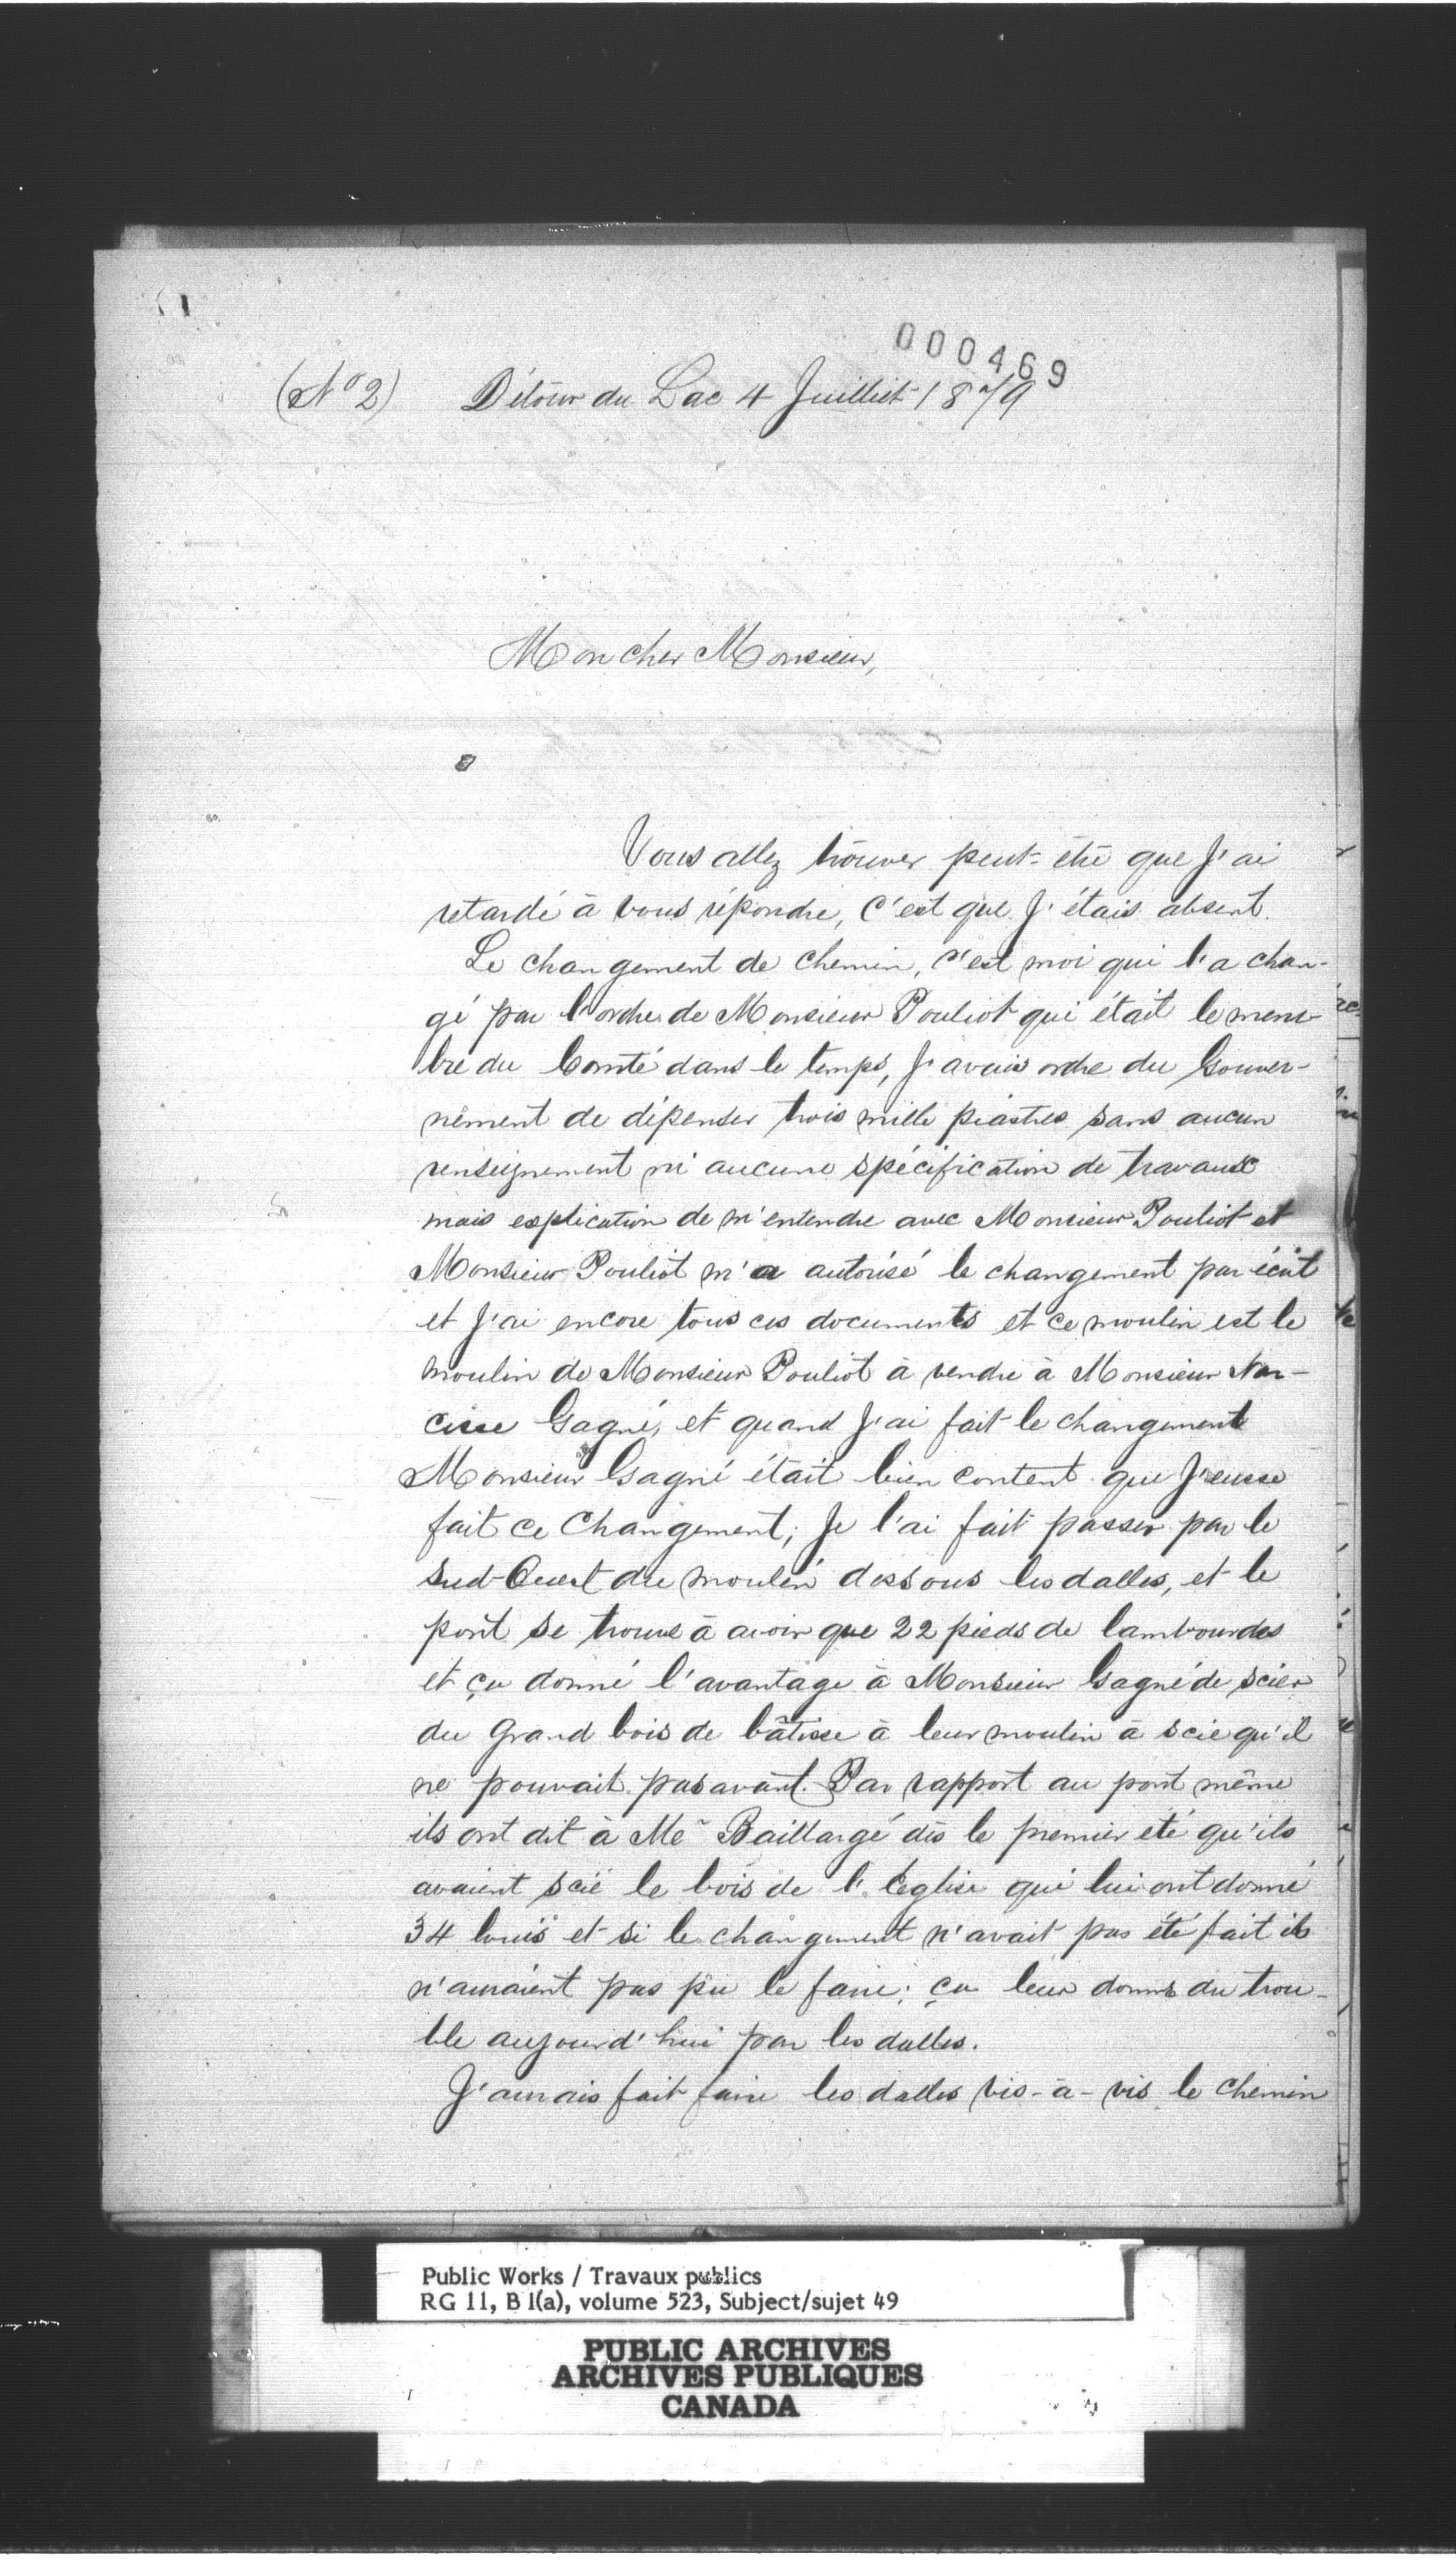 000469
(No 2) Détour du Lac 4 Juillet 1879
Mon cher Monsieur,
Vous allez trouver peut-être que J'ai
retardé à vous répondre, C'est que J'étais absent.
Le changement de chemin, C'est moi qui l'a chan-
gé par l'ordre de Monsieur Pouliot qui était le mem-
bre du Comté dans le temps, J'avais ordre du Gouver-
nement de dépenser trois mille piastres sans aucun
renseignement ni aucune spécification de travaux
mais explication de m'entendre avec Monsieur Pouliot et
Monsieur Pouliot m'a autorisé le changement par écrit
et J'ai encore tous ces documents et ce moulin est le
moulin de Monsieur Pouliot à vendre à Monsieur Nar-
cisse Gagné, et quand J'ai fait le changement
Monsieur Gagné était bien content que J'eusse
fait ce Changement; Je l'ai fait passer par le
Sud-Ouest du moulin dessous les dalles, et le
pont se trouve à avoir que 22 pieds de lambourdes
et ça donné l'avantage à Monsieur Gagné de scier
du grand bois de bâtisse à leur moulin à scie qu'il
ne pouvait pas avant. Par rapport au pont même
ils ont dit à Mr Baillargé dès le premier été qu'ils
avaient scié le bois de l'Eglise qui lui ont donné
34 louis et si le changement n'avait pas été fait ils
n'auraient pas pu le faire; ça leur donne du trou-
ble aujourd'hui par les dalles.
J'aurais fait faire les dalles vis-à-vis le chemin
Public Works / Travaux publics
RG 11, B 1(a), volume 523, Subject/sujet 49
PUBLIC ARCHIVES
ARCHIVES PUBLIQUES
CANADA